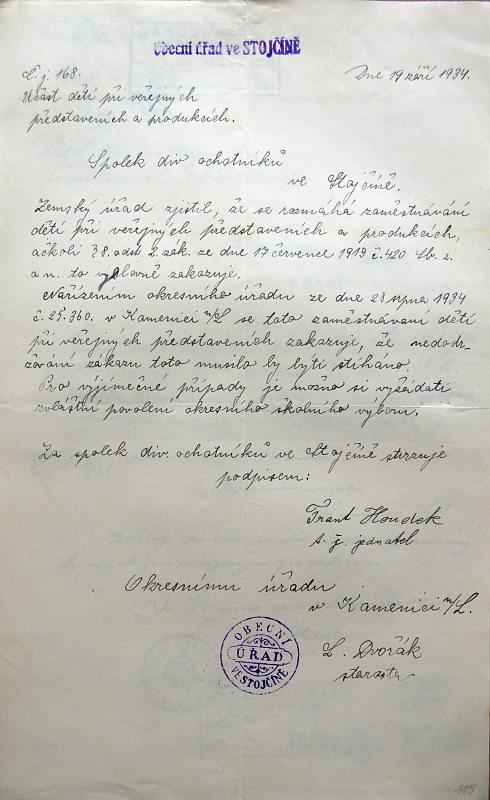 Obecní úřad ve STOJČÍNĚ
Č. j. 168.
Dne 19 září 1934.
Účast dětí při veřejných
představeních a produkcích.
Spolek div. ochotníků
ve Stojčíně.
Zemský úřad zjistil, že se rozmáhá zaměstnávání
dětí při veřejných představeních a produkcích,
ačkoli § 8. odst. 2. zák. ze dne 17 července 1919 č. 420 Sb. z.
a n. to výslovně zakazuje.
Nařízením okresního úřadu ze dne 28 srpna 1934
č. 25.360. v Kamenici n/L se toto zaměstnávaní dětí
při veřejných představeních zakazuje, že nedodr-
žování zákazu toto musilo by býti stíháno.
Pro vyjímečné případy je možno si vyžádati
zvláštní povolení okresního školního výboru.
Za spolek div. ochotníků ve Stojčíně stvrzuje
podpisem:
Frant Houdek
t. č. jednatel
Okresnímu úřadu
v Kamenici n/L.
OBECNÍ
ÚŘAD
VE STOJČÍNĚ
L. Dvořák
starosta
115